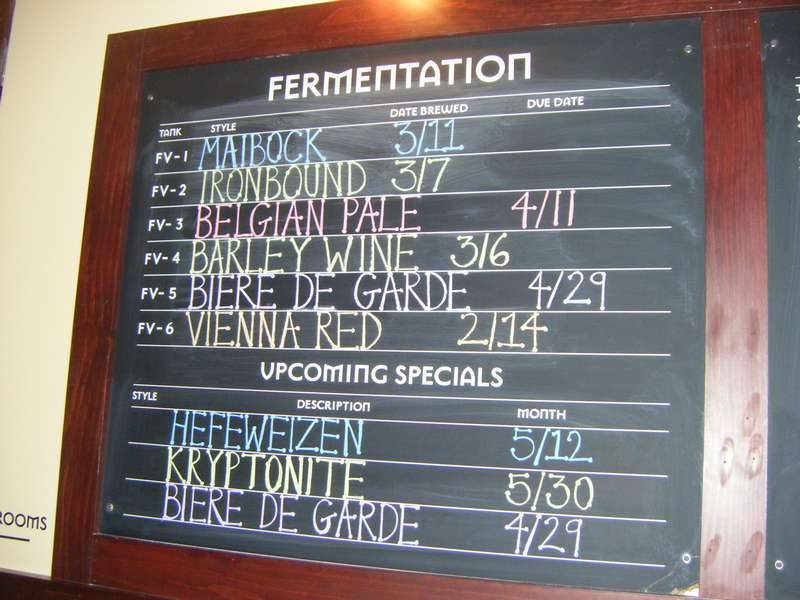 FERMENTATION
TANK STYLE DATE BREWED DUE DATE
FV-1 MAIBOCK 3/11
FV-2 IRONBOUND 3/7
FV-3 BELGIAN PALE 4/11
FV-4 BARLEY WINE 3/6
FV-5 BIERE DE GARDE 4/29
FV-6 VIENNA RED 2/14
UPCOMING SPECIALS
STYLE DESCRIPTION MONTH
HEFEWEIZEN 5/12
KRYPTONITE 5/30
BIERE DE GARDE 4/29
ROOMS